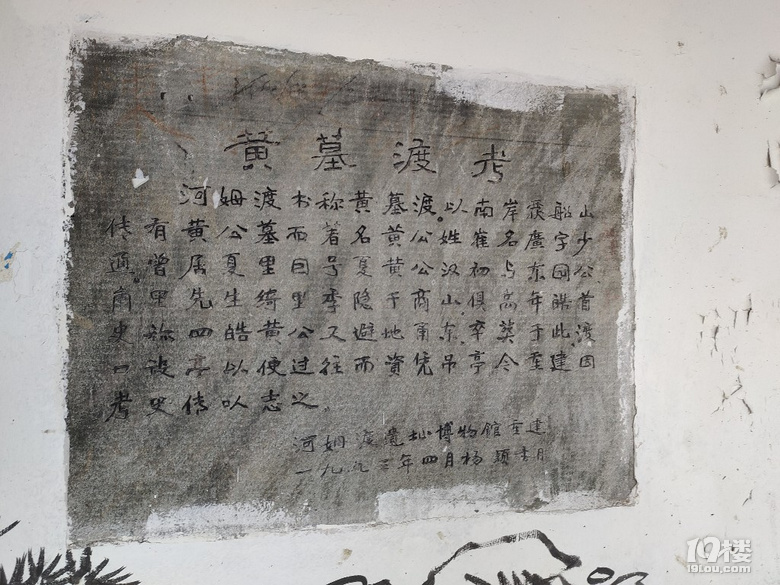 黄墓渡考
传有河姆渡书称黄墓渡。以南岸覆船山
通曾黄公墓而着名黄公姓崔名廣字少
商里居夏里因号夏黄公汉初与东园公
史称先生绮里季隐于商山俱高年皓首
一设四皓黄公又避地甬东卒葬于此渡
亭以便过往而资凭吊亭今至建因
考史传以志之。
河姆渡遗址博物馆重建
一九九三年四月杨书
19楼
19lou.com